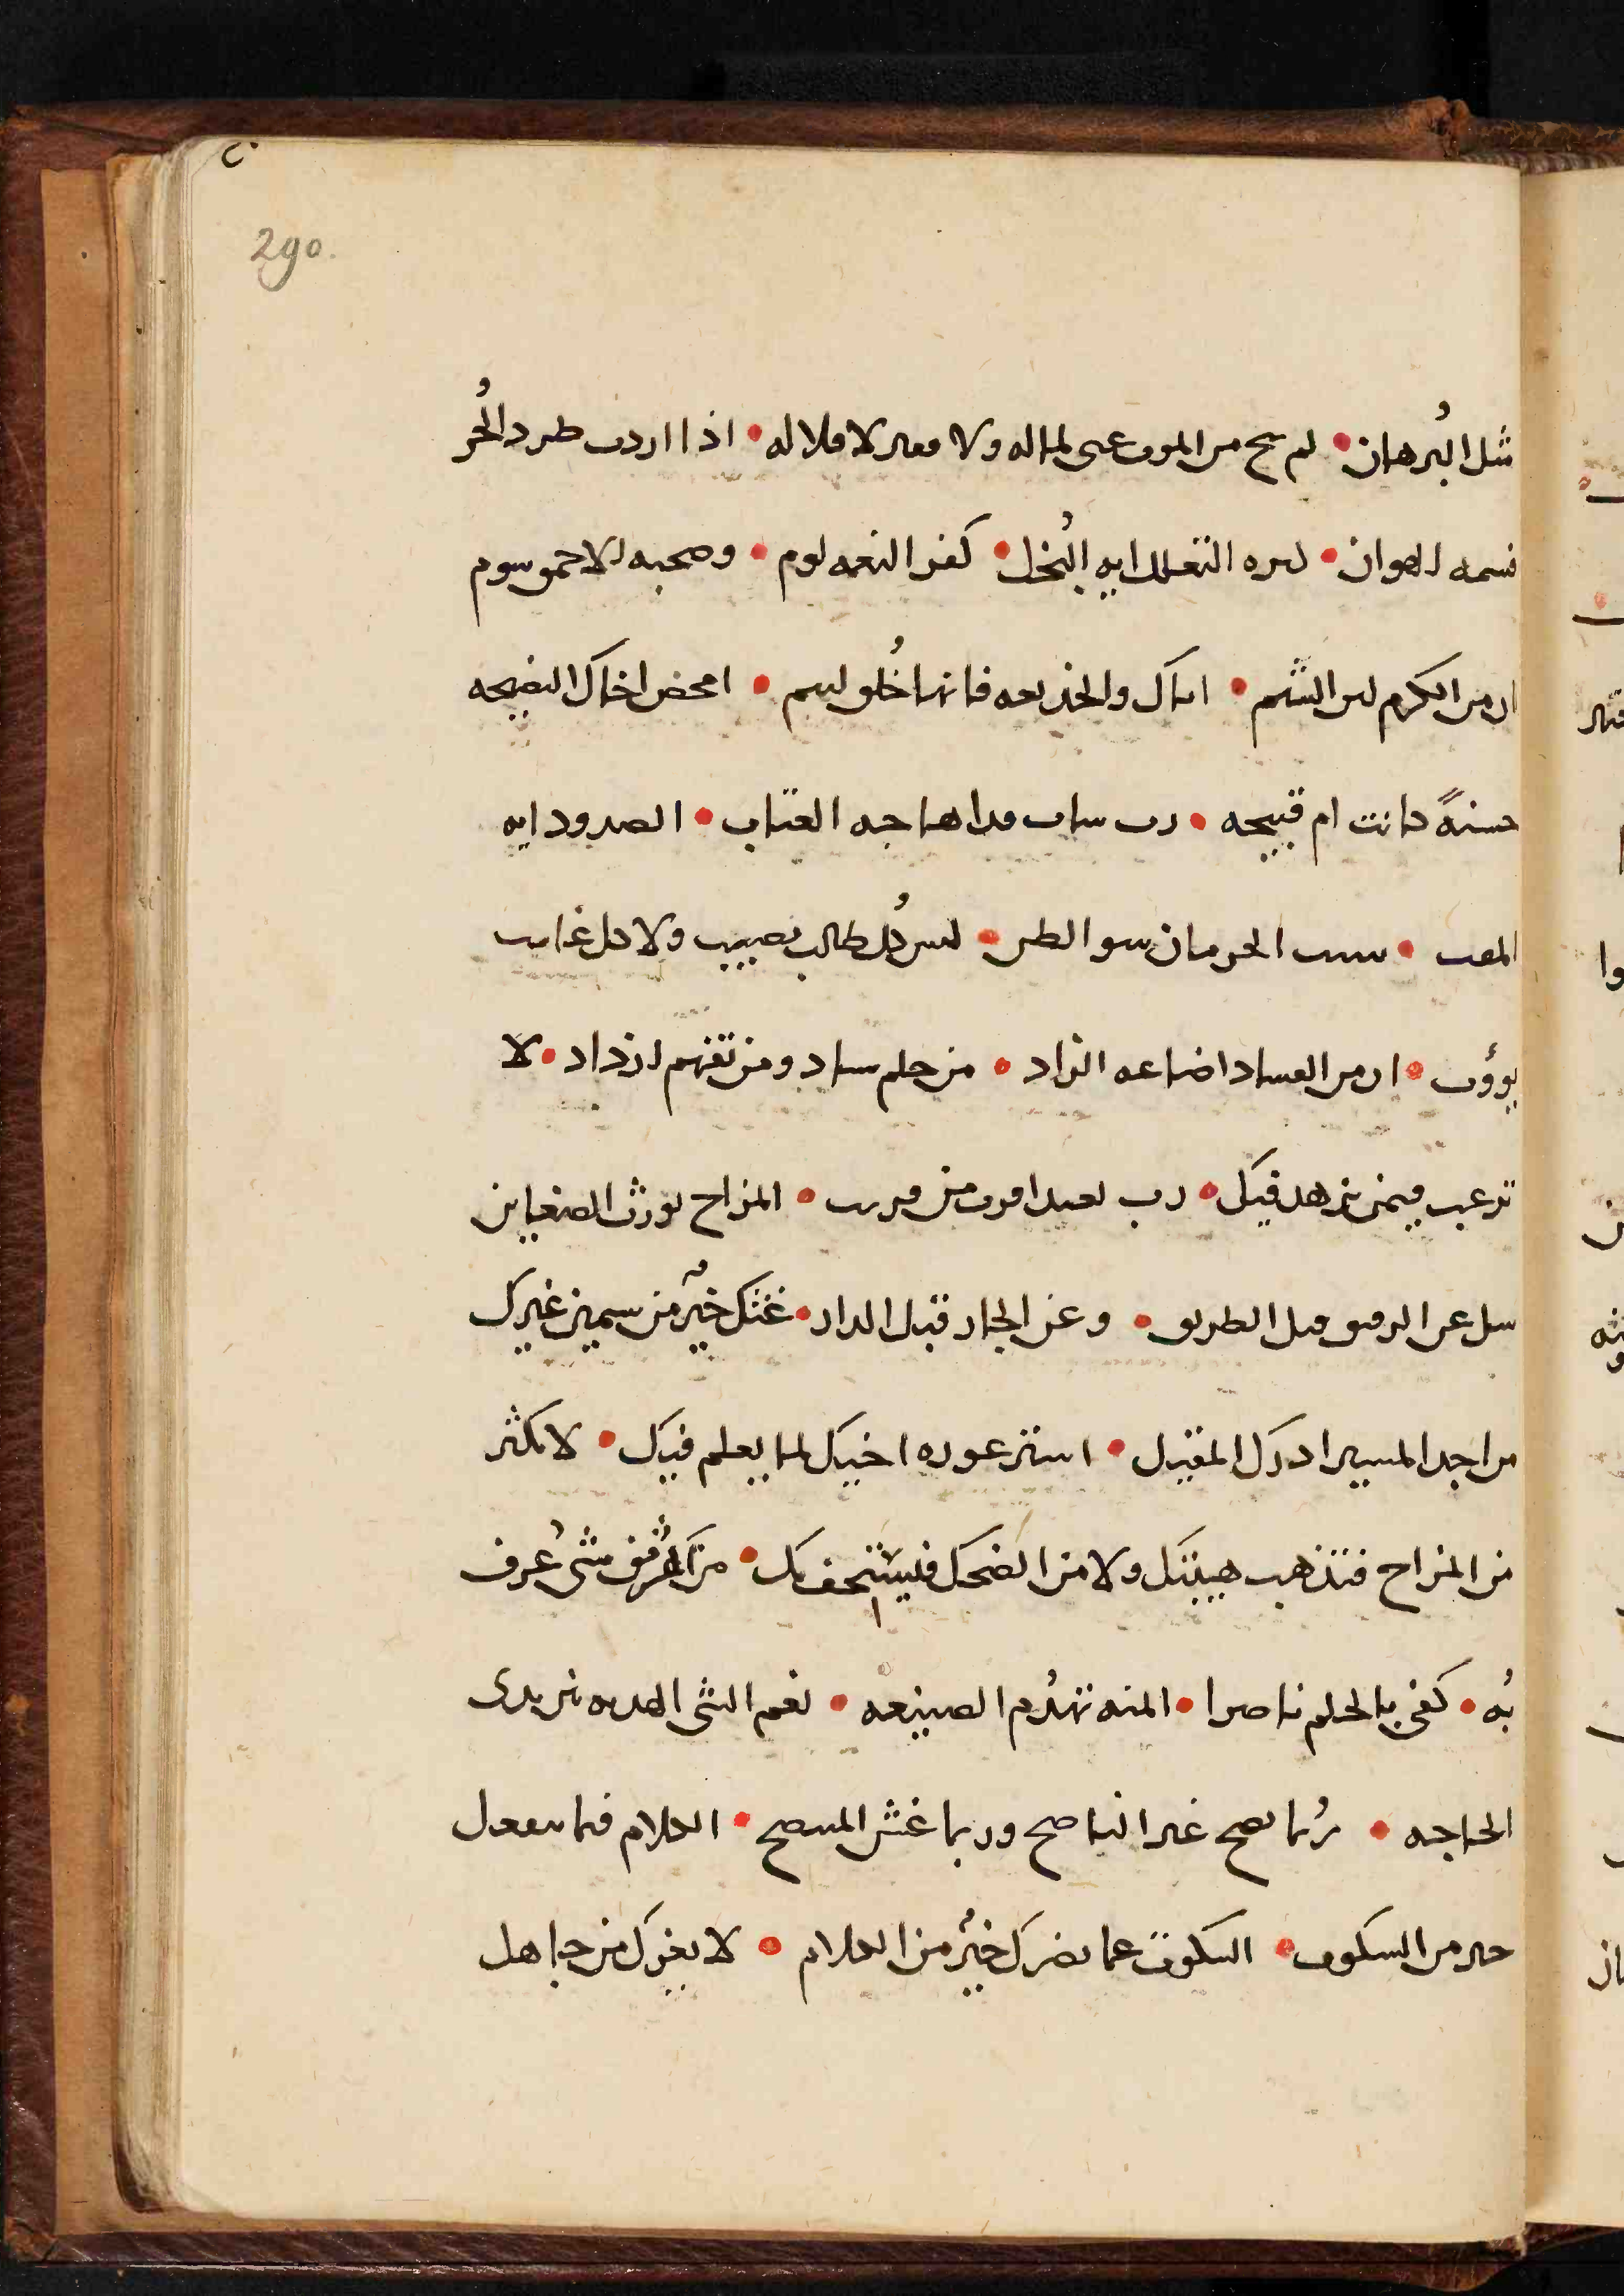 290.
شل البُرهان • لم ينج من الموت غنى لماله ولا فقير لاقلاله • اذا اردت طرد الحُر
فسمه الهوان • كثره التعلل ايه البُخل • كفر النعمه لوم • وصحبه الاحمق سوم
ان من الكرم لين الشيم • اياك والخديعه فانها خُلق لييم • امحض اخاك النصيحه
حسنةً كانت ام قبيحه • رب سباب قد اهاجه العتاب • الصدود ايه
المقت • سبب الحرمان سو الظن • ليس كُل طالب يصيب ولا كل غايب
يوؤب • ان من الفساد اضاعه الزاد • من حلم ساد ومن تفهم ازداد • لا
ترغب فيمن يزهد فيك • رب بعيد اقرب من قريب • المزاح يورث الضغاين
سل عن الرفيق قبل الطريق • وعن الجار قبل الدار • غثك خيرٌ من سمين غيرك
من اجد المسير ادرك المقيل • استر عوره اخيك لما يعلم فيك • لا تكثر
من المزاح فتذهب هيبتك ولا من الضحك فليستخف بك • من اكثر من شى عُرف
بُه • كفى بالحلم ناصرا • المنه تهدُم الصنيعه • نعم الشى الهديه بين يدى
الحاجه • رُبما نصح غير الناصح وربما غش المستنصح • الكلام فيما ينفعك
خير من السكوت • السكوت عما يضرك خيرٌ من الكلام • لا يغرك من جاهل